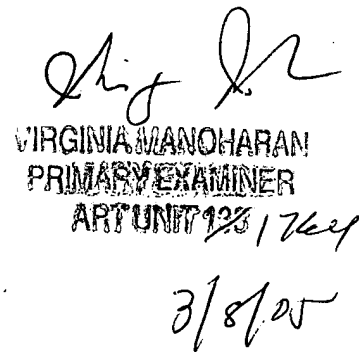 VIRGINIA MANOHARAN
PRIMARY EXAMINER
ART UNIT 133 1764
3/8/05